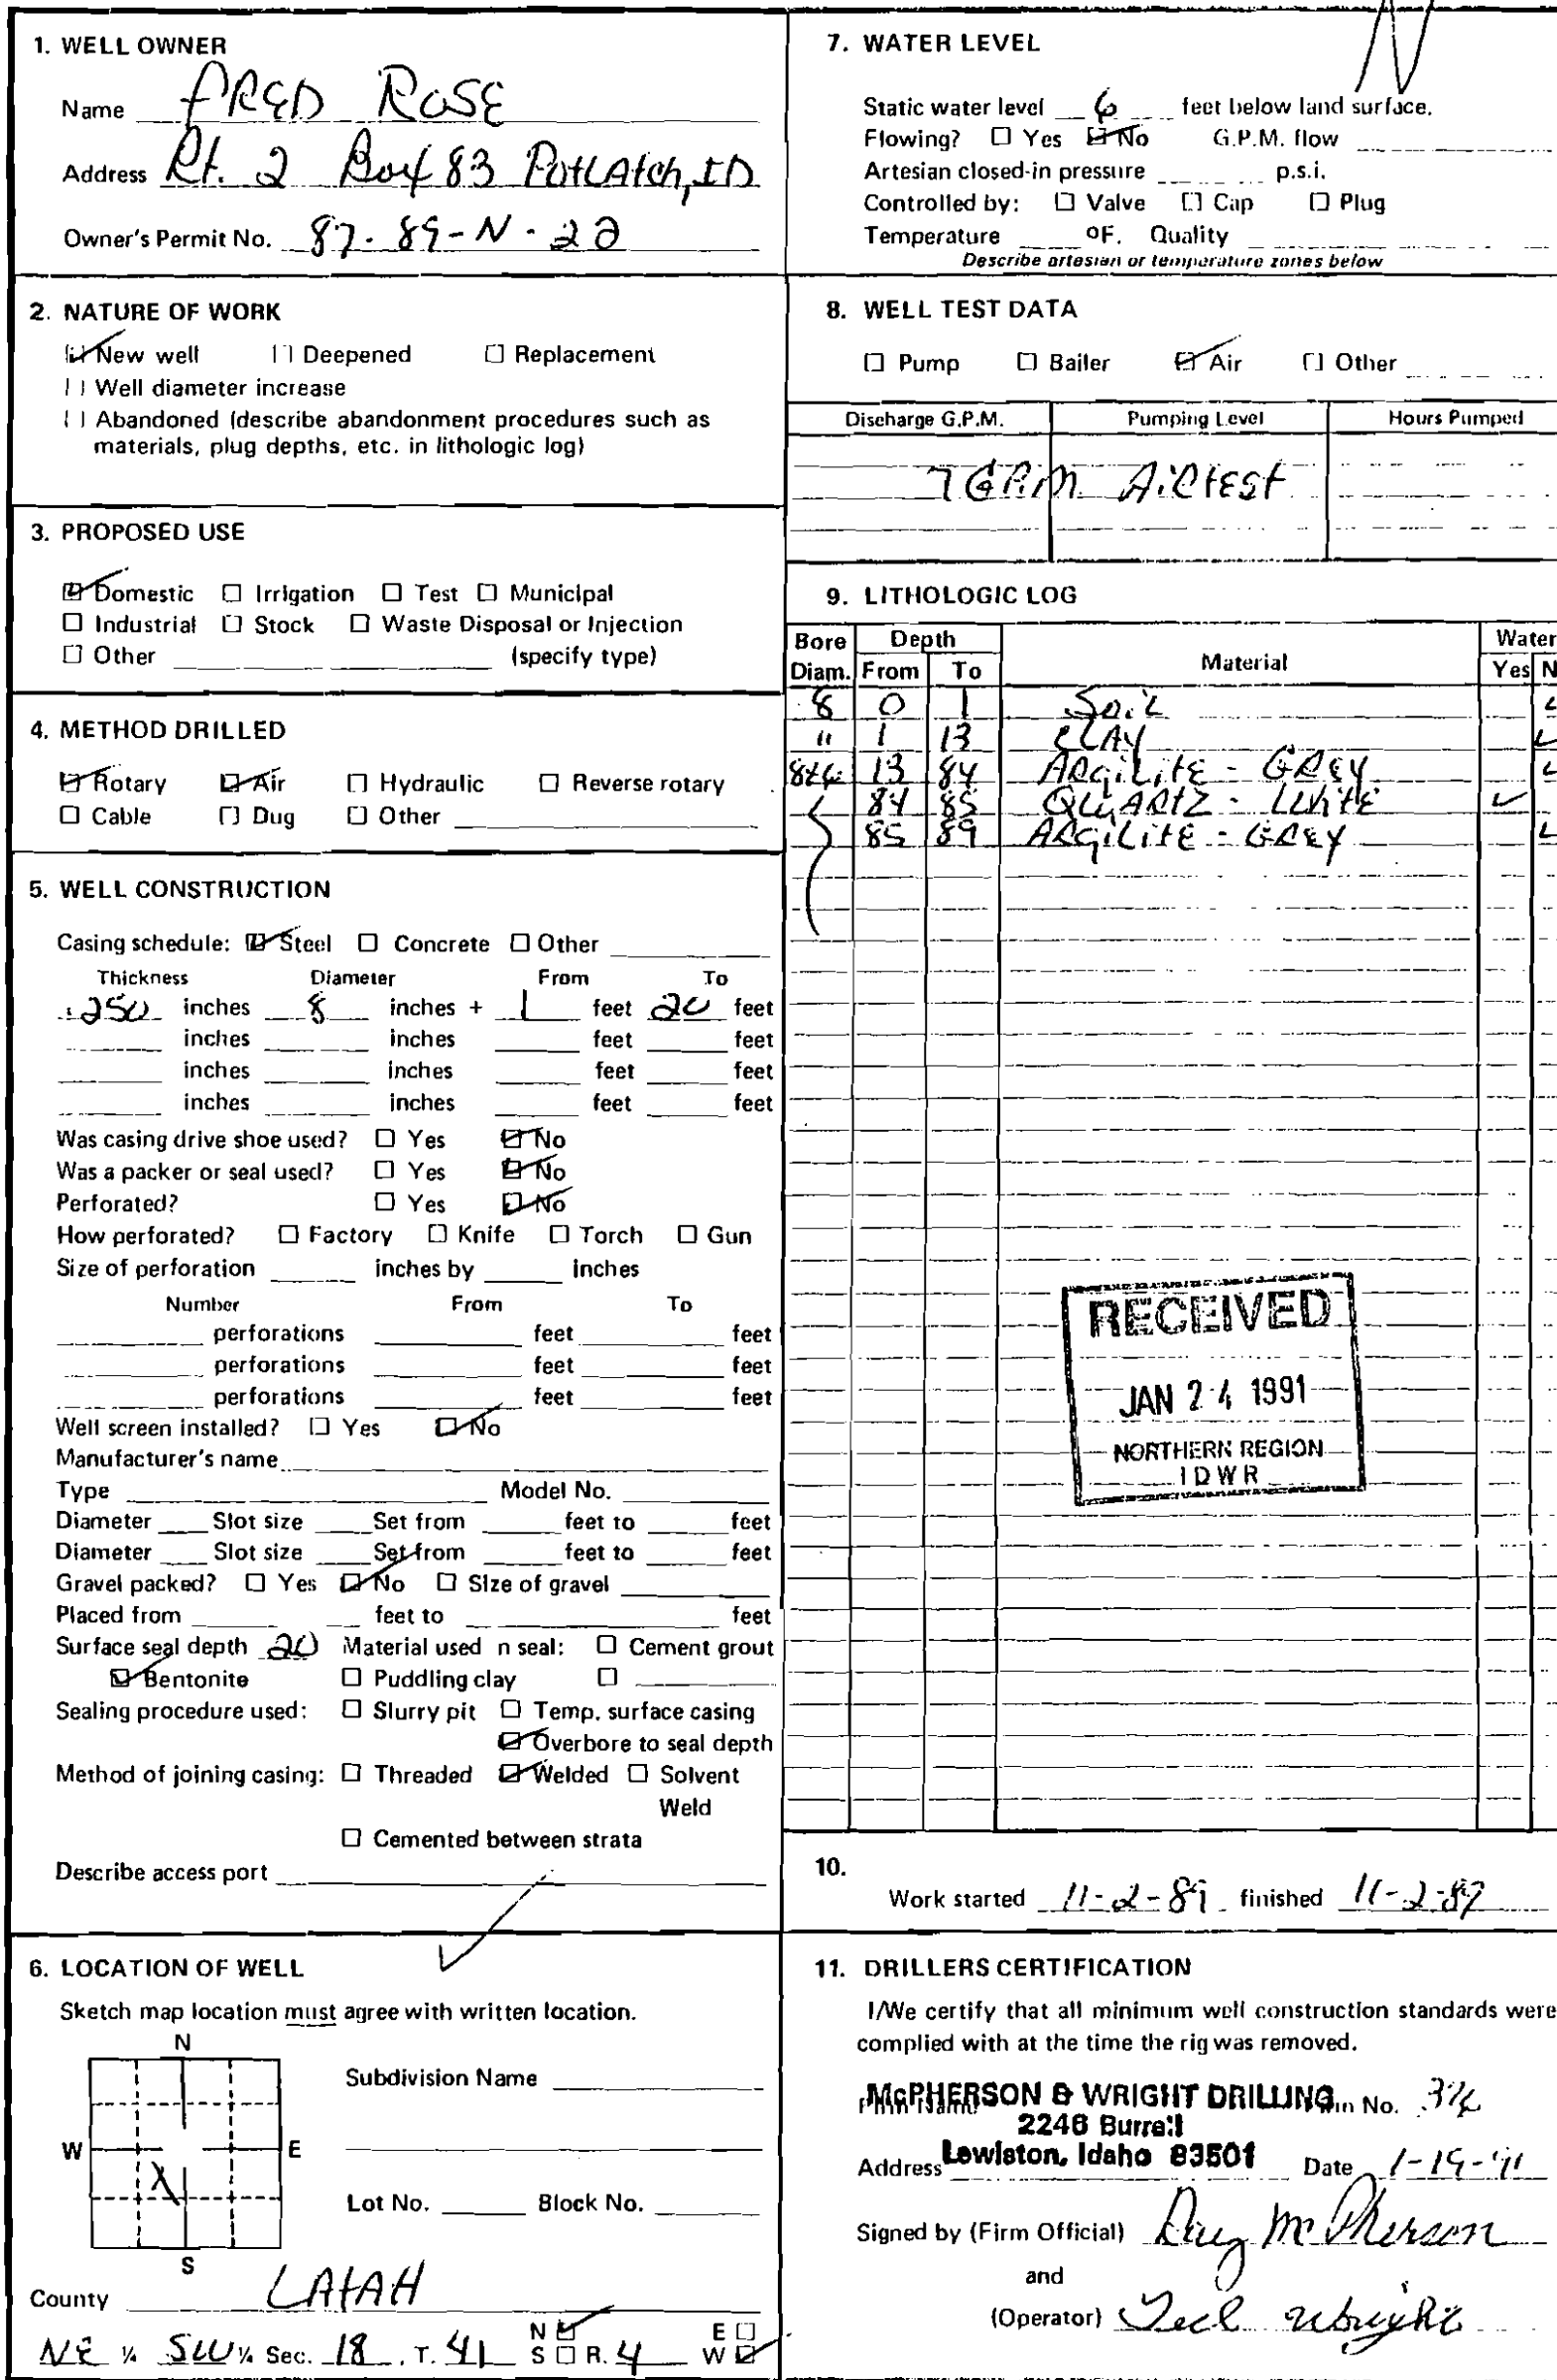 1. WELL OWNER
Name FRED ROSE
Address Rt. 2 Box 83 Potlatch, ID
Owner's Permit No. 87-89-N-22
2. NATURE OF WORK
New well Deepened Replacement
Well diameter increase
Abandoned (describe abandonment procedures such as
materials, plug depths, etc. in lithologic log)
3. PROPOSED USE
Domestic Irrigation Test Municipal
Industrial Stock Waste Disposal or Injection
Other (specify type)
4. METHOD DRILLED
Rotary Air Hydraulic Reverse rotary
Cable Dug Other
5. WELL CONSTRUCTION
Casing schedule: Steel Concrete Other
Thickness Diameter From To
.250 inches 8 inches + 1 feet 20 feet
inches inches feet feet
inches inches feet feet
inches inches feet feet
Was casing drive shoe used? Yes No
Was a packer or seal used? Yes No
Perforated? Yes No
How perforated? Factory Knife Torch Gun
Size of perforation inches by inches
Number From To
perforations feet feet
perforations feet feet
perforations feet feet
Well screen installed? Yes No
Manufacturer's name
Type Model No.
Diameter Slot size Set from feet to feet
Diameter Slot size Set from feet to feet
Gravel packed? Yes No Size of gravel
Placed from feet to feet
Surface seal depth 20 Material used n seal: Cement grout
Bentonite Puddling clay
Sealing procedure used: Slurry pit Temp. surface casing
Overbore to seal depth
Method of joining casing: Threaded Welded Solvent
Weld
Cemented between strata
Describe access port
6. LOCATION OF WELL
Sketch map location must agree with written location.
N
W E
X
S
Subdivision Name
Lot No. Block No.
County LATAH
N E
NE ¼ SW ¼ Sec. 18, T. 41 S R. 4 W
7. WATER LEVEL
Static water level 6 feet below land surface.
Flowing? Yes No G.P.M. flow
Artesian closed-in pressure p.s.i.
Controlled by: Valve Cap Plug
Temperature ºF. Quality
Describe artesian or temperature zones below
8. WELL TEST DATA
Pump Bailer Air Other
Discharge G.P.M. Pumping Level Hours Pumped
7 GPM Airtest
9. LITHOLOGIC LOG
Bore Depth Water
Diam. From To Material Yes N
8 0 1 Soil
" 1 13 CLAY
13 84 ARgiLitE - GREY
84 85 QUARtZ - White
85 89 ARgiLitE - GREY
RECEIVED
JAN 24 1991
NORTHERN REGION
IDWR
10.
Work started 11-2-89 finished 11-2-89
11. DRILLERS CERTIFICATION
I/We certify that all minimum well construction standards were
complied with at the time the rig was removed.
McPHERSON & WRIGHT DRILLING No.
2246 Burrell
Address Lewiston, Idaho 83501 Date 1-19-91
Signed by (Firm Official) Doug McPherson
and
(Operator) Ted Wright